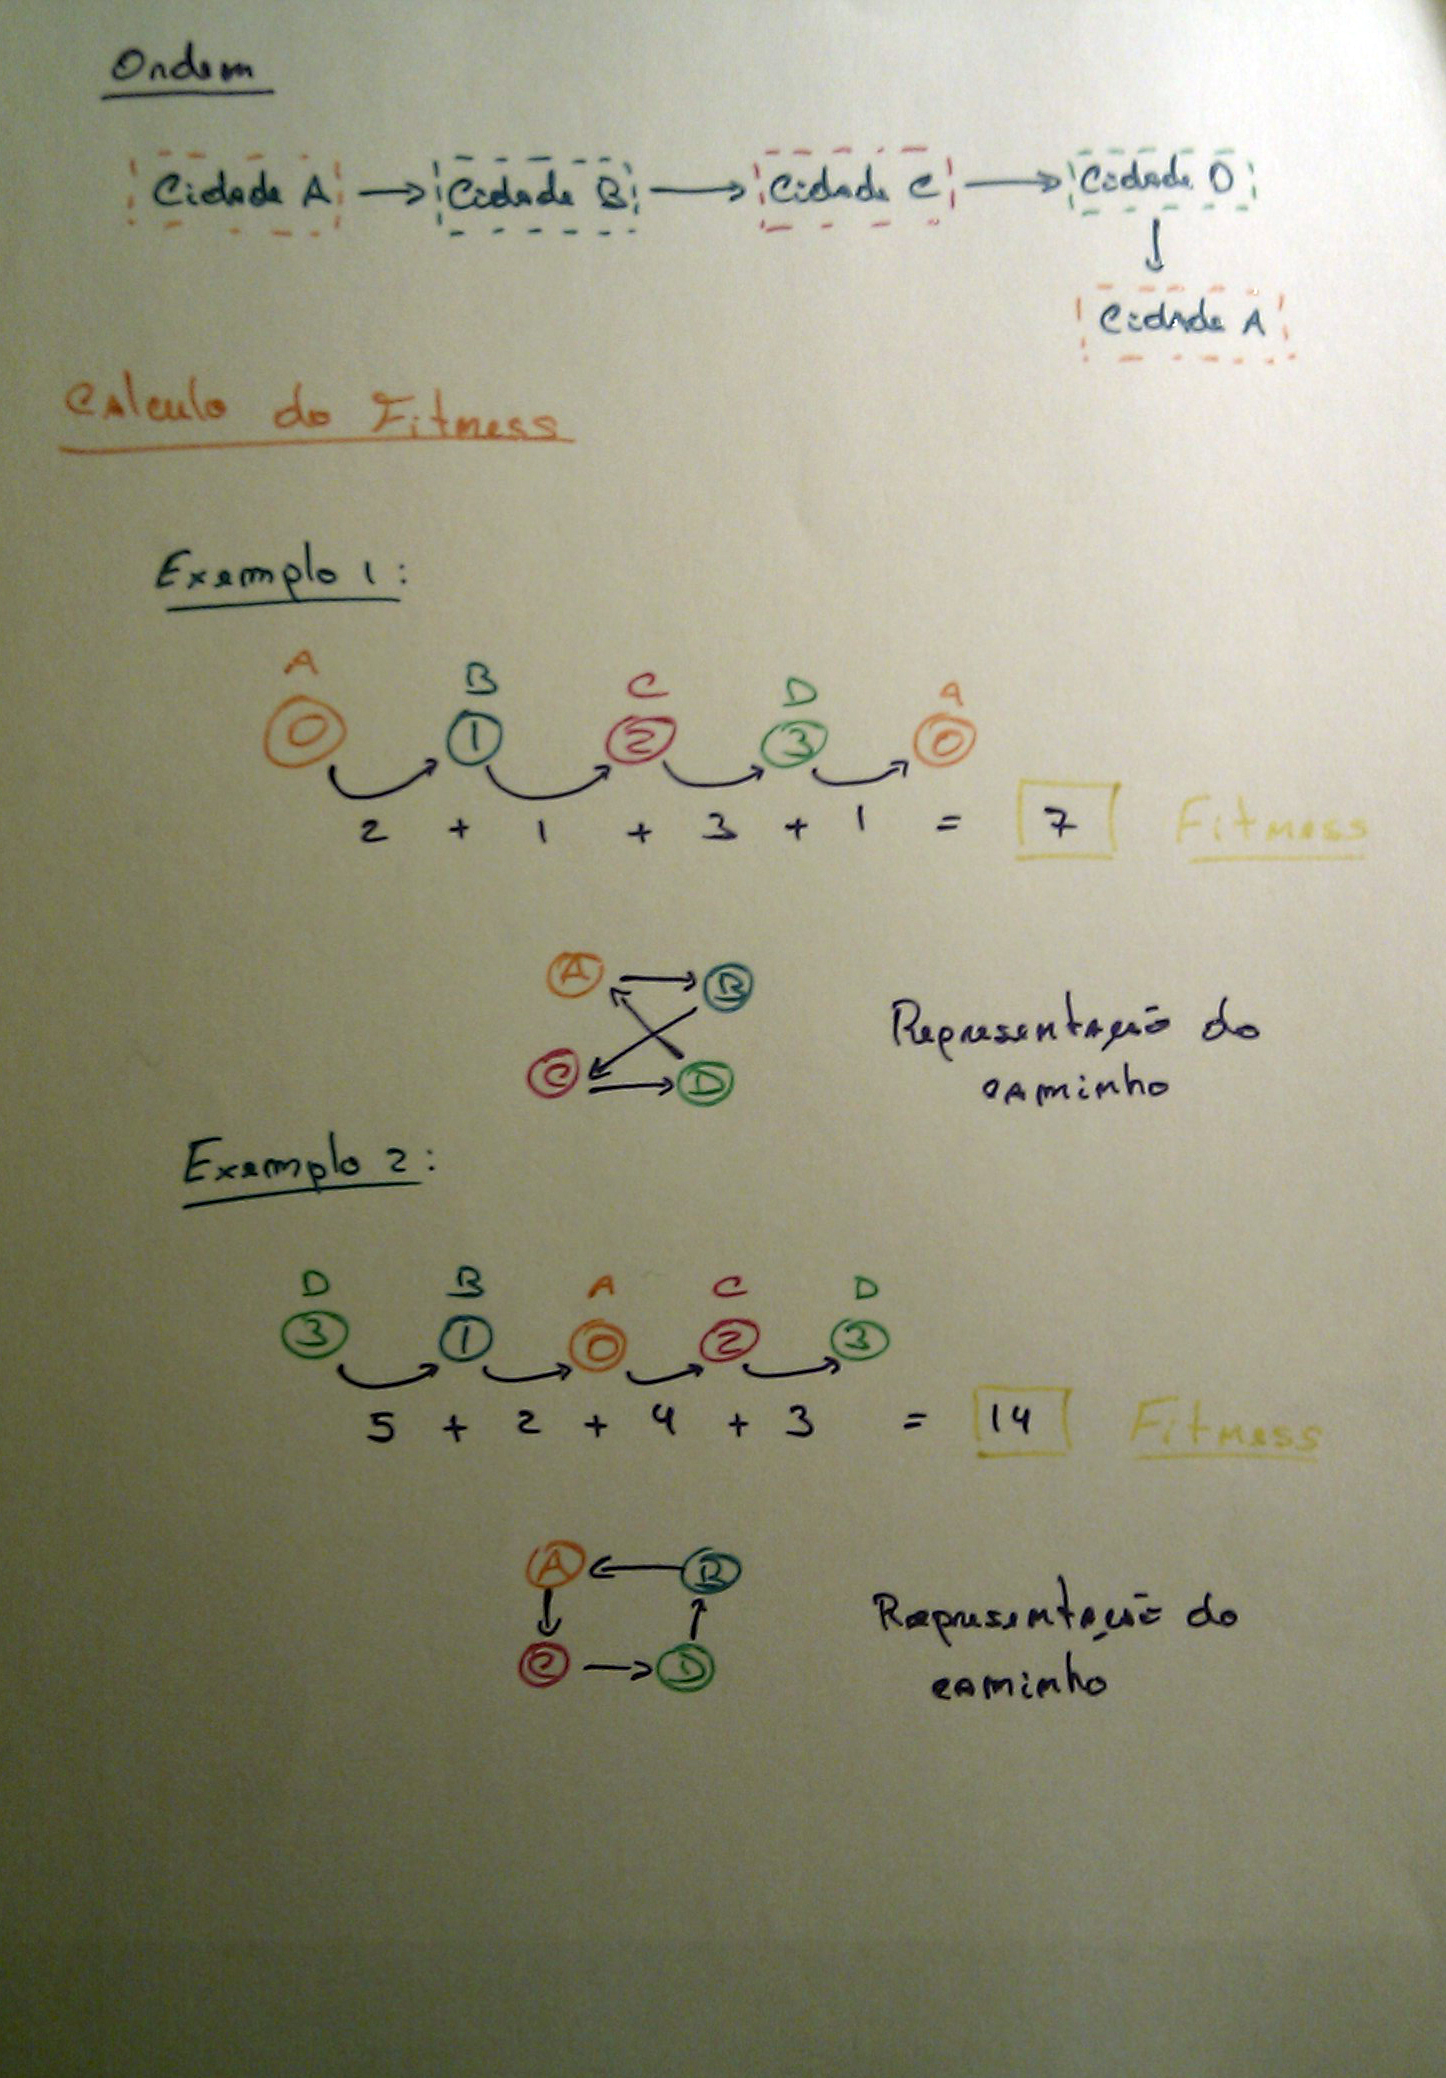 Ordem
Cidade A → Cidade B → Cidade C → Cidade D
Cidade A
Calculo do Fitness
Exemplo 1:
A B C D A
0 1 2 3 0
2 + 1 + 3 + 1 = 7 Fitness
A B
C D
Representação do
caminho
Exemplo 2:
D B A C D
3 1 0 2 3
5 + 2 + 4 + 3 = 14 Fitness
A B
C D
Representação do
caminho